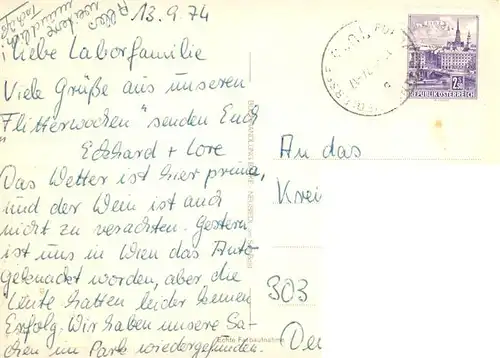 13.9.74
Alles
weitere
mündlich
Liebe Laborfamilie
Viele Grüße aus unseren
Flitterwochen" senden Euch
Eckhard + Lore
Das Wetter ist hier prima,
und der Wein ist auch
nicht zu verachten. Gestern
ist uns in Wien das Auto
geknackt worden, aber die
Leute hatten leider keinen
Erfolg. Wir haben unsere Sa-
chen im Park wiedergefunden.
An das
Krei
303
REPUBLIK ÖSTERREICH
Echte Farbaufnahme